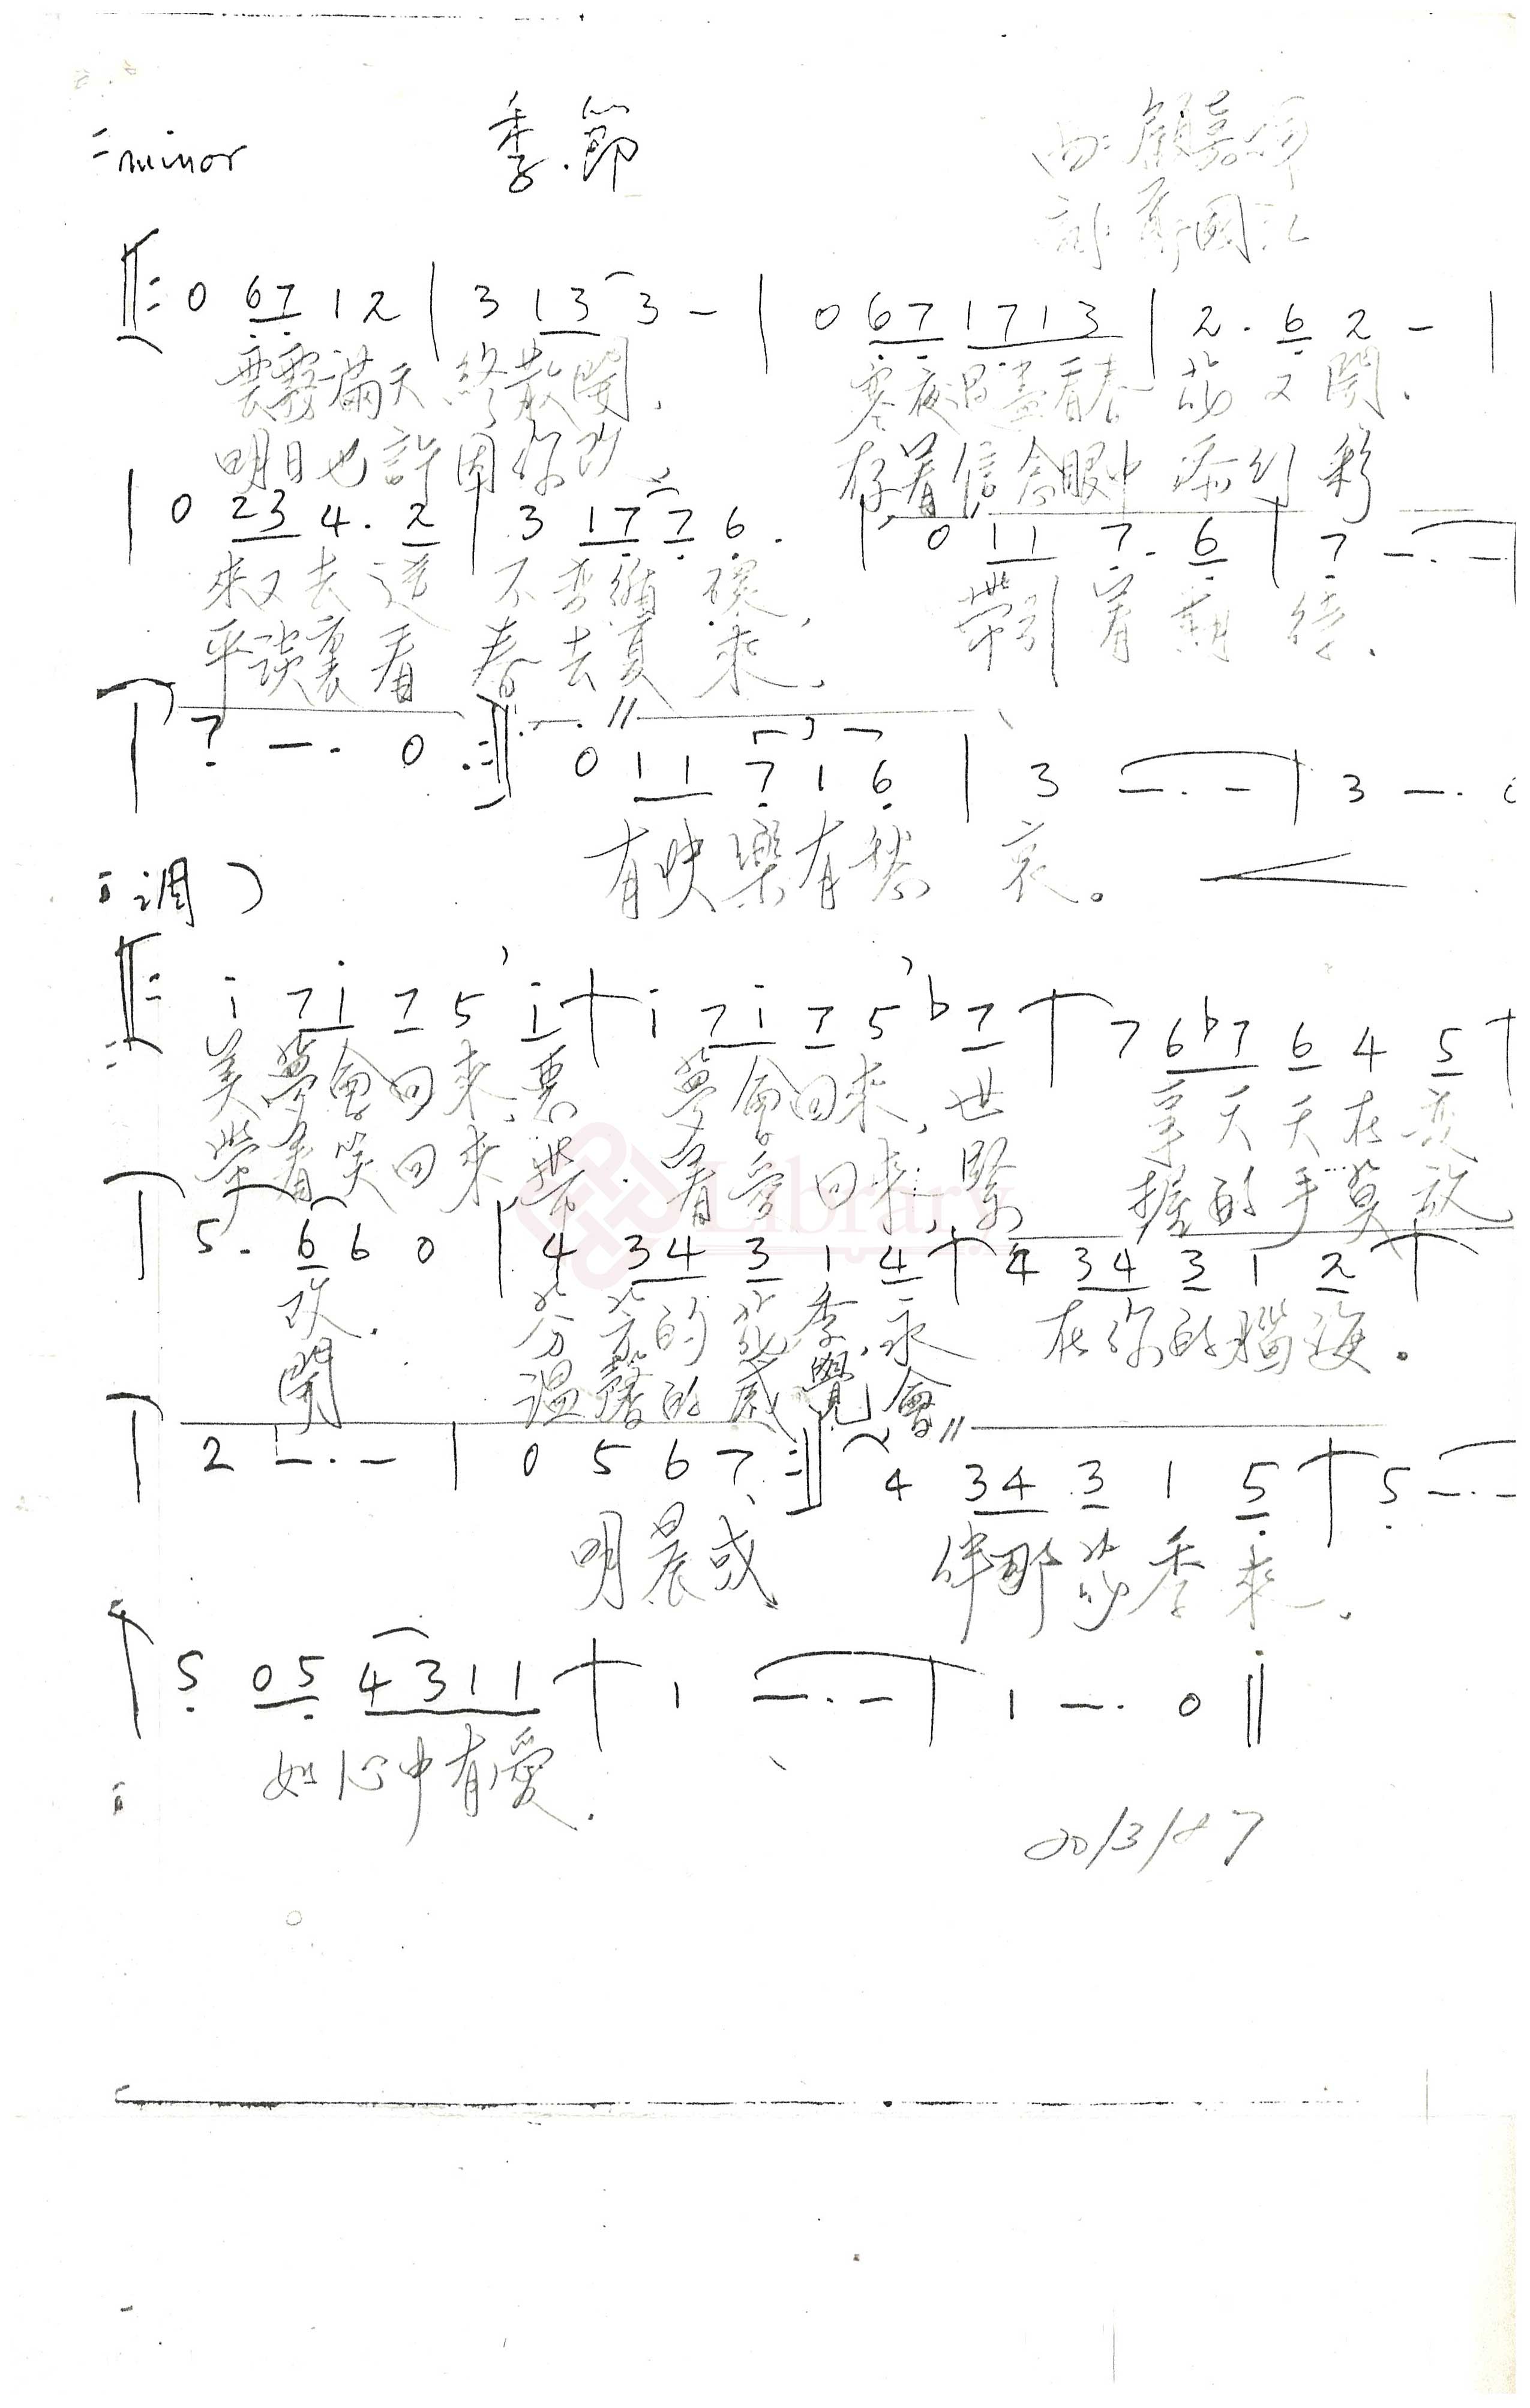 =minor 季節 曲:顧嘉煇
詞:鄭國江
‖: 0 67 1 2 | 3 13 3 - | 0 67 1713 | 2 . 6 2 - |
雲霧滿天終散開, 寒夜過盡看春花又開.
明日也許因你改, 存着信念眼中添幻彩
| 0 23 4 . 2 | 3 17 7 6 . | 0 11 7 . 6 | 7 - . -
來又去這不變循環, 帶引着期待.
平談裏看春去夏來,
7 - . 0 :‖ 0 11 7 1 6 | 3 - . - | 3 - . 0
有快樂有愁哀。
調)
‖: i 7i 7 5 i | i 7i 7 5 b7 | 7 6b7 6 4 5 |
美夢會回來,惡夢會回來,世事天天在變
帶着笑回來帶着愛回來,緊握的手莫放
5 . 6 6 0 | 4 34 3 1 4 | 4 34 3 1 2 |
改. 芬芳的花季,永在你的腦海。
開 溫馨的感覺會
2 - . - | 0 5 6 7 :‖ 4 34 3 1 5 | 5 - . -
明晨或 伴那花季來,
5 05 4311 | 1 - . - | 1 - . 0 ‖
如心中有愛.
20/3/87
Library